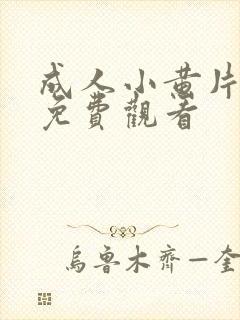 成人小黄片
免費觀看
烏魯木齊—奎